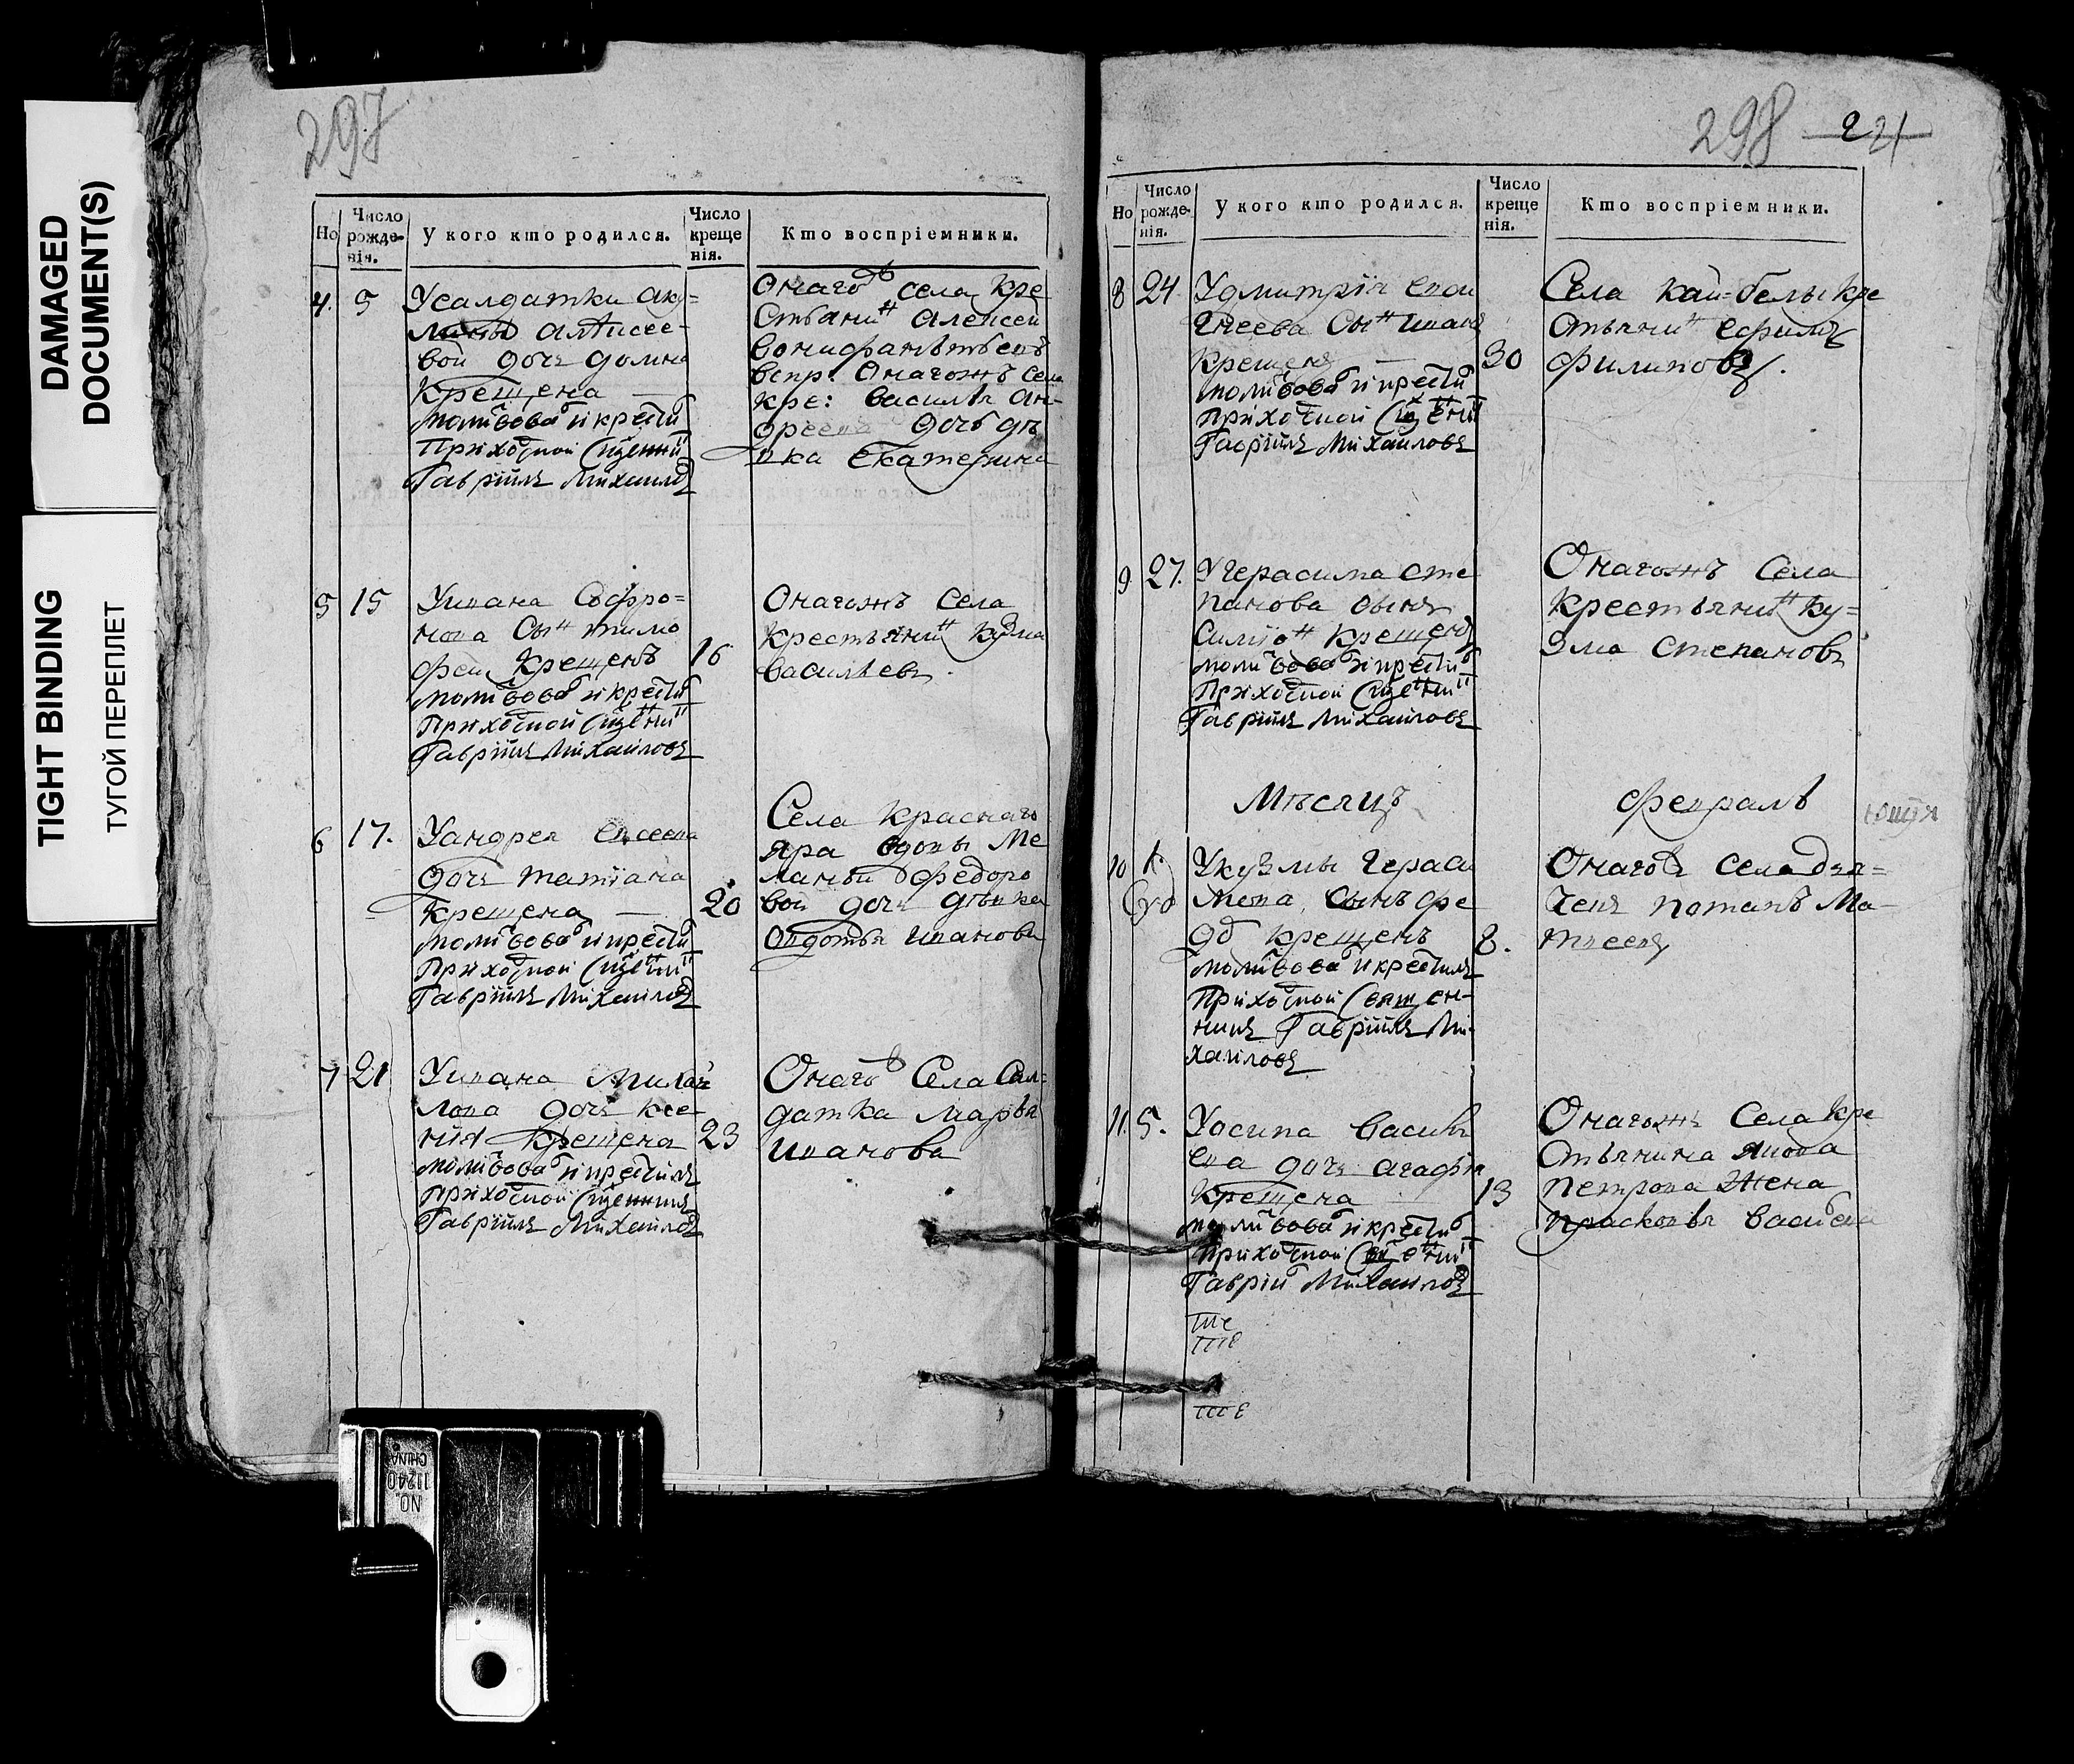 DAMAGED
DOCUMENT(S)
TIGHT BINDING
ТУГОЙ ПЕРЕПЛЕТ
297
Но
Число рожде-нія.
У кого кто родился.
Число креще нія.
Кто воспріемники.
4. 5
Усалдатки аку=
лины алѣксее-
вой дочь домна
Крещена —
молитвова и крести
Приходской Сщенни
Гавріилъ Михаиловъ
Онаго села кре
стьянинъ алексей
вонифантьевъ
воспр. Онагожъ села
кре: василья ан-
дреева дочь дѣ
вка Екатерина
5 15
Уивана Софро=
нова Сынъ тимо
фей Крещенъ
16
молитвова и крести
Приходской Сщенни
Гавріилъ Михаиловъ
Онагожъ Села
крестьянинъ кузма
василіевъ.
6 17.
Уандрея евсеева
дочь татіана
Крещена —
20
молитвова и крести
Приходской Сщенни
Гавріилъ Михаиловъ
Села Краснаго
яра вдовы Ме
ланьи федоро
вой дочь дѣвка
Авдотья иванова
7 21
Уивана Михаи
лова дочь ксе-
нія Крещена
23
молитвова и крестилъ
приходской Сщенникъ
Гавріилъ Михаиловъ
Онаго Села Сал=
датка марья
иванова
298 221
Но
Число рожде-нія.
У кого кто родился.
Число креще нія.
Кто воспріемники.
8 24
Удмитрія
Сынъ иванъ
Крещенъ —
30
молитвова и крести
приходской Сщенни
Гавріилъ Михаиловъ
Села кай=белы кре
стьянинъ ефимъ
филиповъ.
9 27.
Угерасима сте
панова сынъ
Симіонъ Крещенъ
молитвова и крести
Приходской Сщенни
Гавріилъ Михаиловъ
Онагожъ Села
Крестьянинъ ку=
зма степановъ
Мѣсяцъ февраль
10
Укузмы гераси
мова, Сынъ фе
дор Крещенъ
8.
молитвова и крестилъ
Приходской Священ-
никъ Гавріилъ Ми-
хаиловъ
Онагожъ села дья=
чекъ потапъ Ма-
твеевъ
11. 5.
Уосипа василь
ева дочь агафья
Крещена
13
молитвова и крести
приходской Сщенни
Гавріил Михаиловъ
Онагожъ Села кре
стьянина якова
петрова жена
прасковья васильева